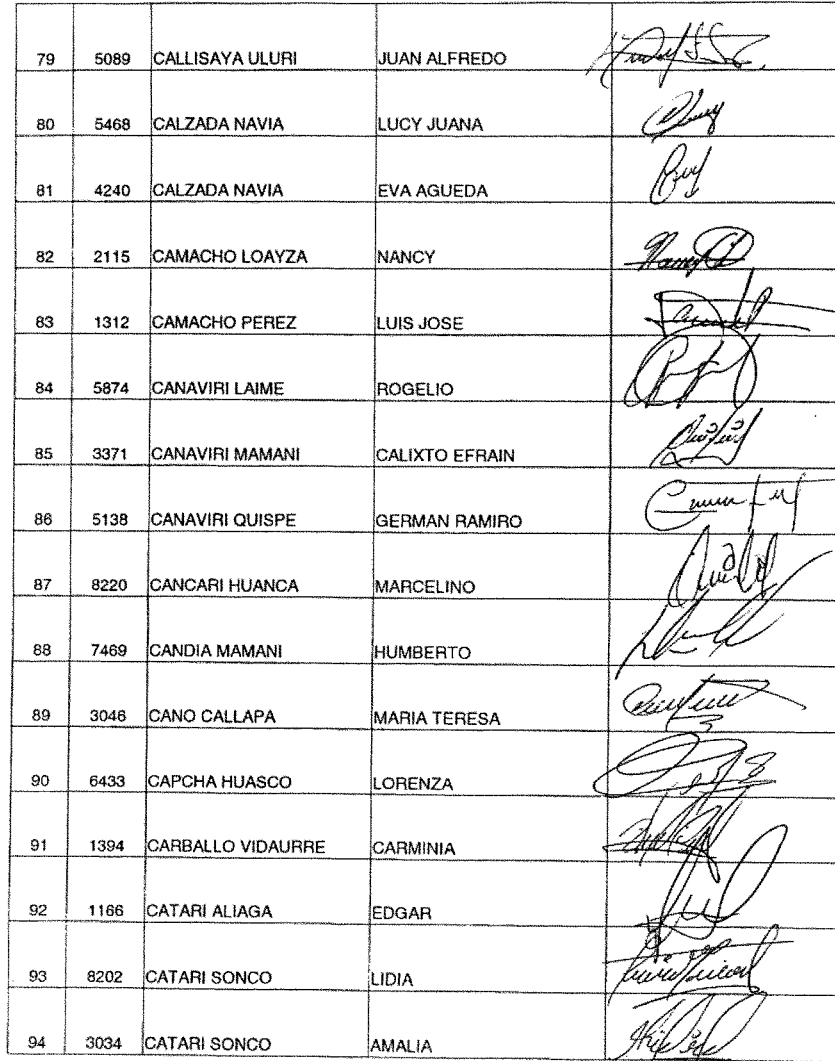 79 5089 CALLISAYA ULURI JUAN ALFREDO
80 5468 CALZADA NAVIA LUCY JUANA
81 4240 CALZADA NAVIA EVA AGUEDA
82 2115 CAMACHO LOAYZA NANCY
83 1312 CAMACHO PEREZ LUIS JOSE
84 5874 CANAVIRI LAIME ROGELIO
85 3371 CANAVIRI MAMANI CALIXTO EFRAIN
86 5138 CANAVIRI QUISPE GERMAN RAMIRO
87 8220 CANCARI HUANCA MARCELINO
88 7469 CANDIA MAMANI HUMBERTO
89 3046 CANO CALLAPA MARIA TERESA
90 6433 CAPCHA HUASCO LORENZA
91 1394 CARBALLO VIDAURRE CARMINIA
92 1166 CATARI ALIAGA EDGAR
93 8202 CATARI SONCO LIDIA
94 3034 CATARI SONCO AMALIA